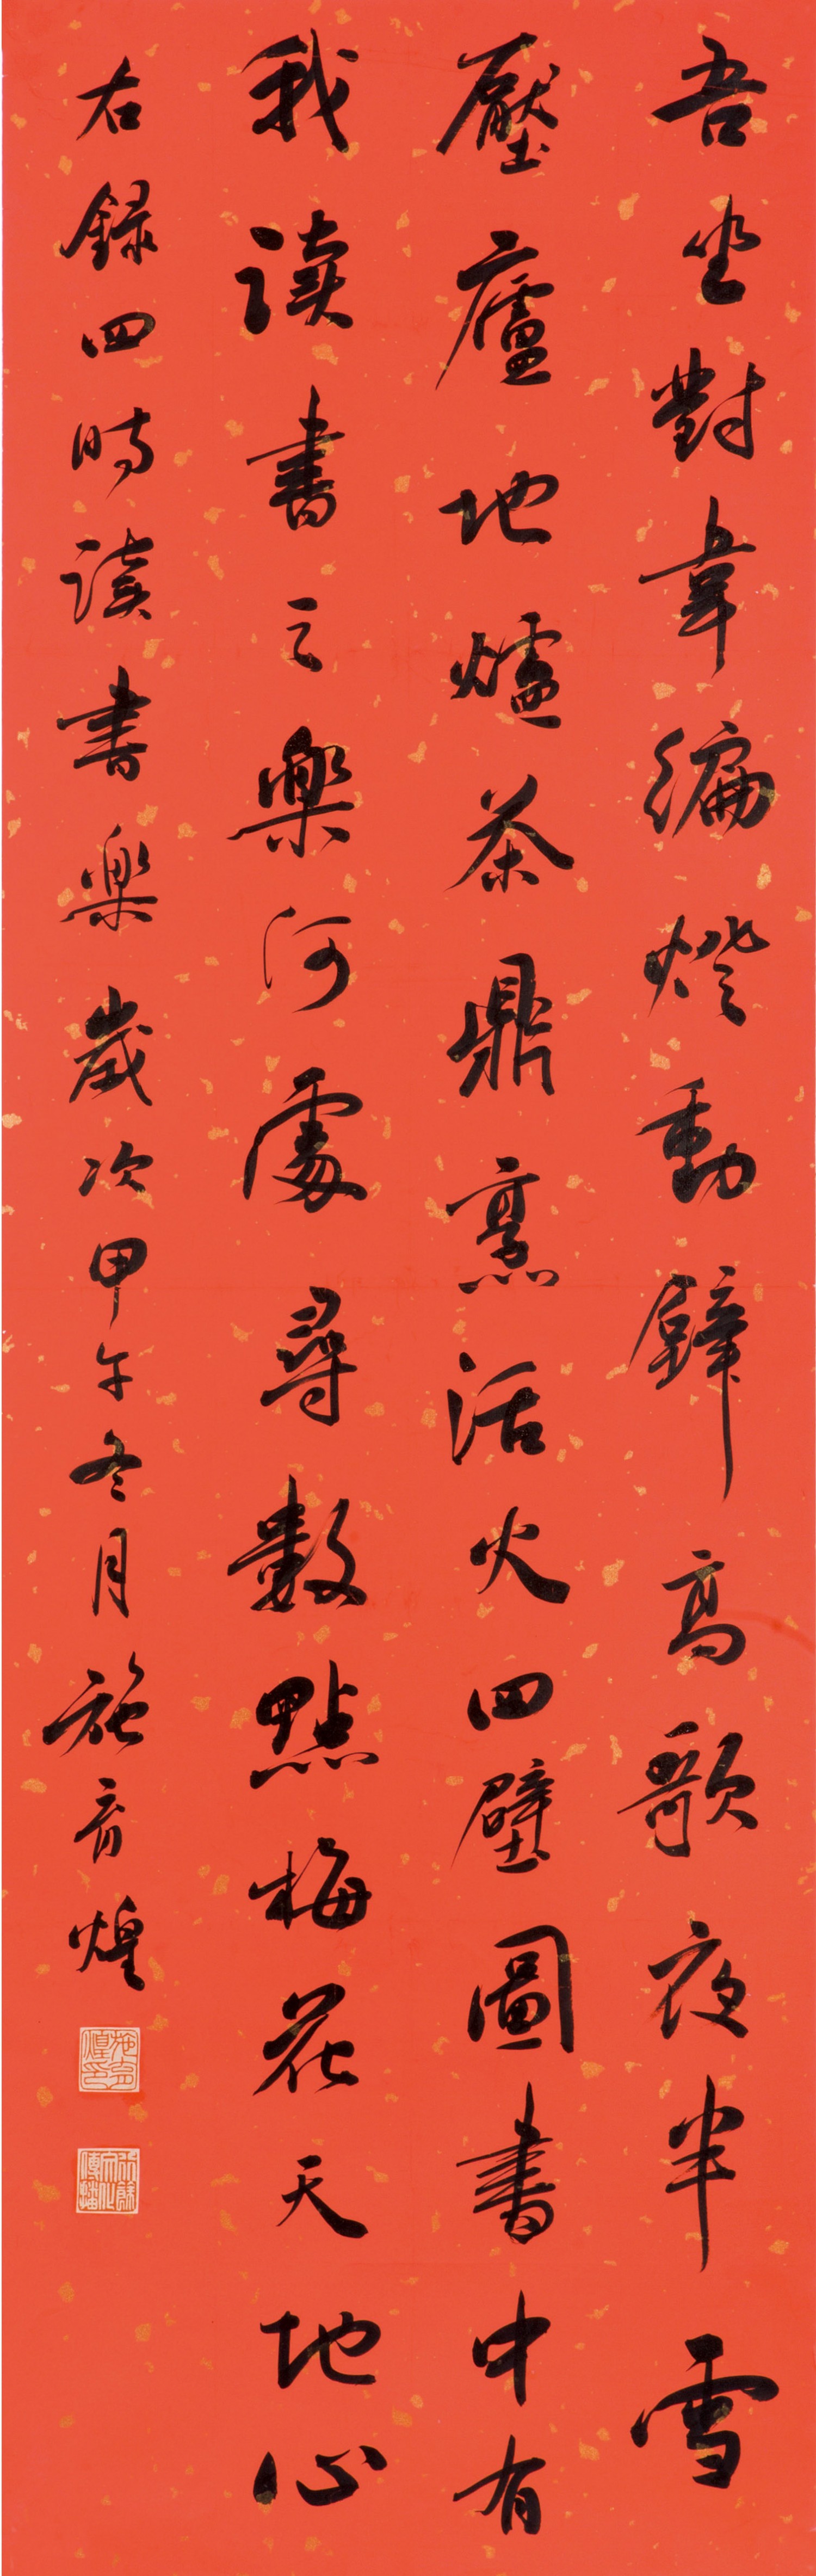 吾坐對韋編燈動壁高歌夜半雪
壓廬地爐茶鼎烹活火四壁圖書中有
我读書之樂何處尋數點梅花天地心
右録四時读書樂歲次甲午冬月施育煌